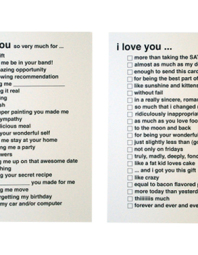 ou so very much for ...
ift
me be in your band!
azing opportunity
owing recommendation
ng me
g it real
ing
sh
per painting you made me
ympathy
licious meal
your wonderful self
me stay at your home
ng me a party
wers
g me up on that awesome date
hing
ng your secret recipe
you made for me
ng me move
rgetting my birthday
my car and/or computer
i love you ...
more than taking the SA
almost as much as my do
enough to send this card
for being the best part of
like sunshine and kittens
without fail
in a really sincere, roman
so much that i changed m
ridiculously inappropriate
as much as you love foo
to the moon and back
for being your wonderful
just slightly less than (go
not only on fridays
truly, madly, deeply, fond
like a fat kid loves cake
... and i got you this gift
like crazy
equal to bacon flavored
more today than yesterd
thiiiiiis much
forever and ever and eve